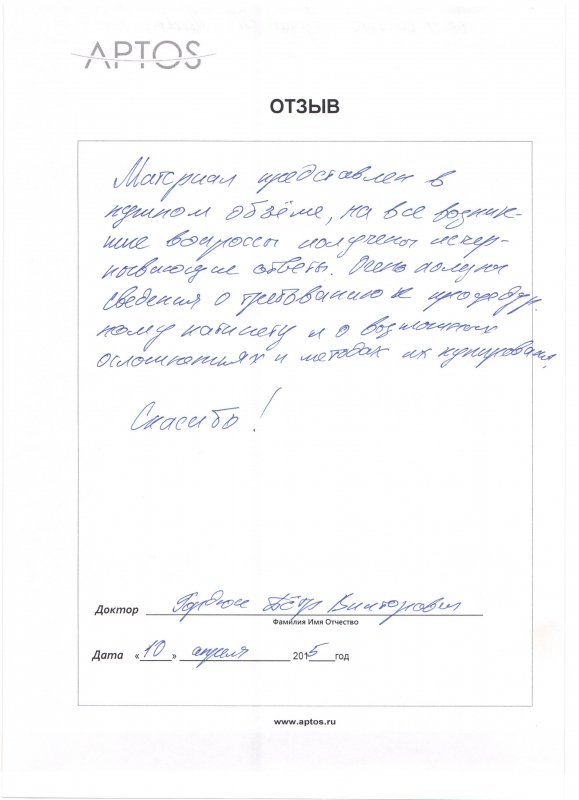 APTOS
ОТЗЫВ
Материал представлен в
нужном объёме, на все возник-
шие вопросы получены исчер-
пывающие ответы. Очень полезны
сведения о требованию к процедур-
ному кабинету и о возможных
осложнениях и методах их купирования.
Спасибо!
Доктор Пётр Викторович
Фамилия Имя Отчество
Дата «10» апреля 2015 год
www.aptos.ru